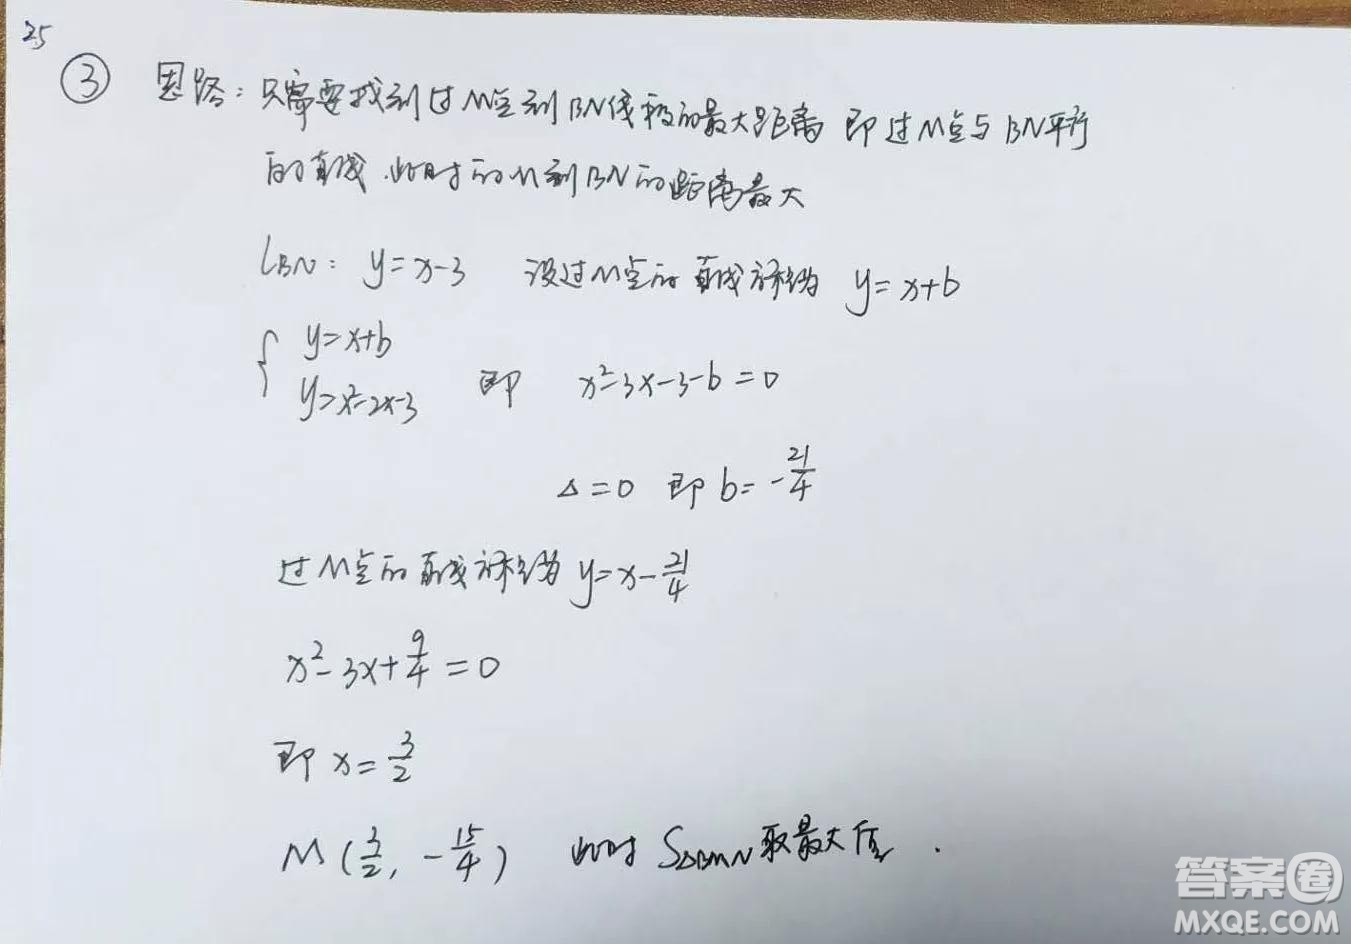 25
③ 思路：只需要找到过M点到BN线段的最大距离 即过M点与BN平行
的直线.此时的M到BN的距离最大
LBN: y=x-3 设过M点的直线方程为 y=x+b
{ y=x+b
y=x²-2x-3 即 x²-3x-3-b=0
Δ=0 即 b=-21/4
过M点的直线方程为 y=x-21/4
x²-3x+9/4=0
即 x=3/2
M(3/2, -15/4) 此时 S△BMN 取最大值.
答案圈
MXQE.COM